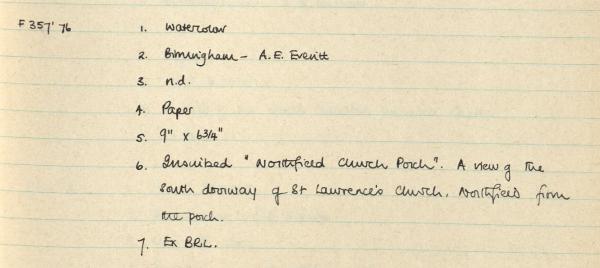 F 357'76 1. Watercolour
2. Birmingham - A.E. Everitt
3. n.d.
4. Paper
5. 9" x 6 3/4"
6. Inscribed "Northfield Church Porch". A view of the
South doorway of St Lawrence's Church, Northfield from
the porch.
7. Ex BRL.